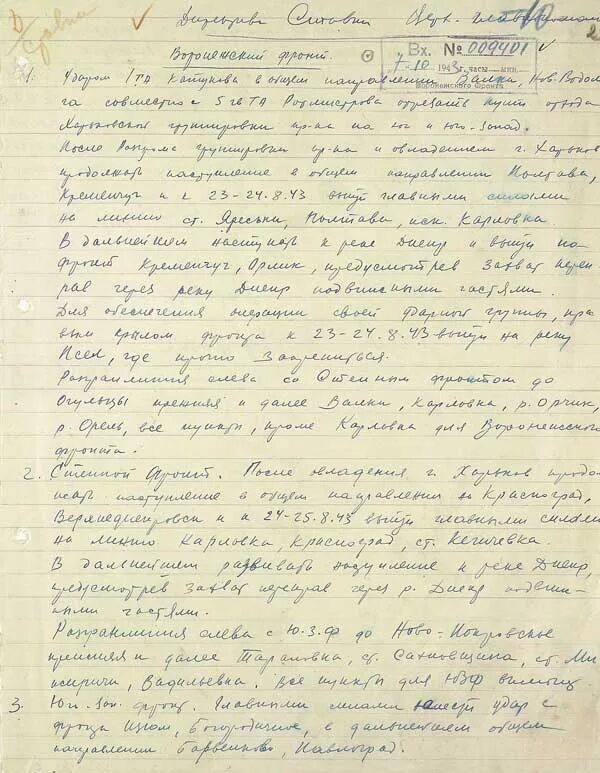 Директива Ставки
Вх. № 009401
7. 10 1943 г. часы мин.
Воронежского Фронта
Воронежский фронт.
1. Ударом 1ТА Катукова в общем направлении Валки, Нов. Водола
га совместно с 5 гв ТА Ротмистрова отрезать пути отхода
Харьковской группировки пр-ка на юг и юго-запад.
После разгрома группировки пр-ка и овладением г. Харьков
продолжать наступление в общем направлении Полтава,
Кременчуг и к 23-24.8.43 выйти главными силами
на линию ст. Яреськи, Полтава, иск. Карловка.
В дальнейшем наступать к реке Днепр и выйти на
фронт Кременчуг, Орлик, предусмотрев захват переп
рав через реку Днепр подвижными частями.
Для обеспечения операции своей ударной группы, пра
вым крылом фронта к 23-24.8.43 выйти на реку
Псел, где прочно закрепиться.
Разгранлиния слева со Степным фронтом до
Огульцы прежняя и далее Валки, Карловка, р. Орчик,
р. Орель, все пункты, кроме Карловка для Воронежского
фронта.
2. Степной Фронт. После овладения г. Харьков продол
жать наступление в общем направлении на Красноград,
Верхнеднепровск и к 24-25.8.43 выйти главными силами
на линию Карловка, Красноград, ст. Кегичевка.
В дальнейшем развивать наступление к реке Днепр,
предусмотрев захват переправ через р. Днепр подвиж-
ными частями.
Разгранлиния слева с Ю.З.Ф до Ново-Покровское
прежняя и далее Тарановка, ст. Сахновщина, ст. Ми
Васильевка. Все пункты для ЮЗФ включ.
3. Юго-зап. фронт. Главными силами нанести удар с
фронта Изюм, Богородичное, в дальнейшем общем
направлении Барвенково, Павлоград.